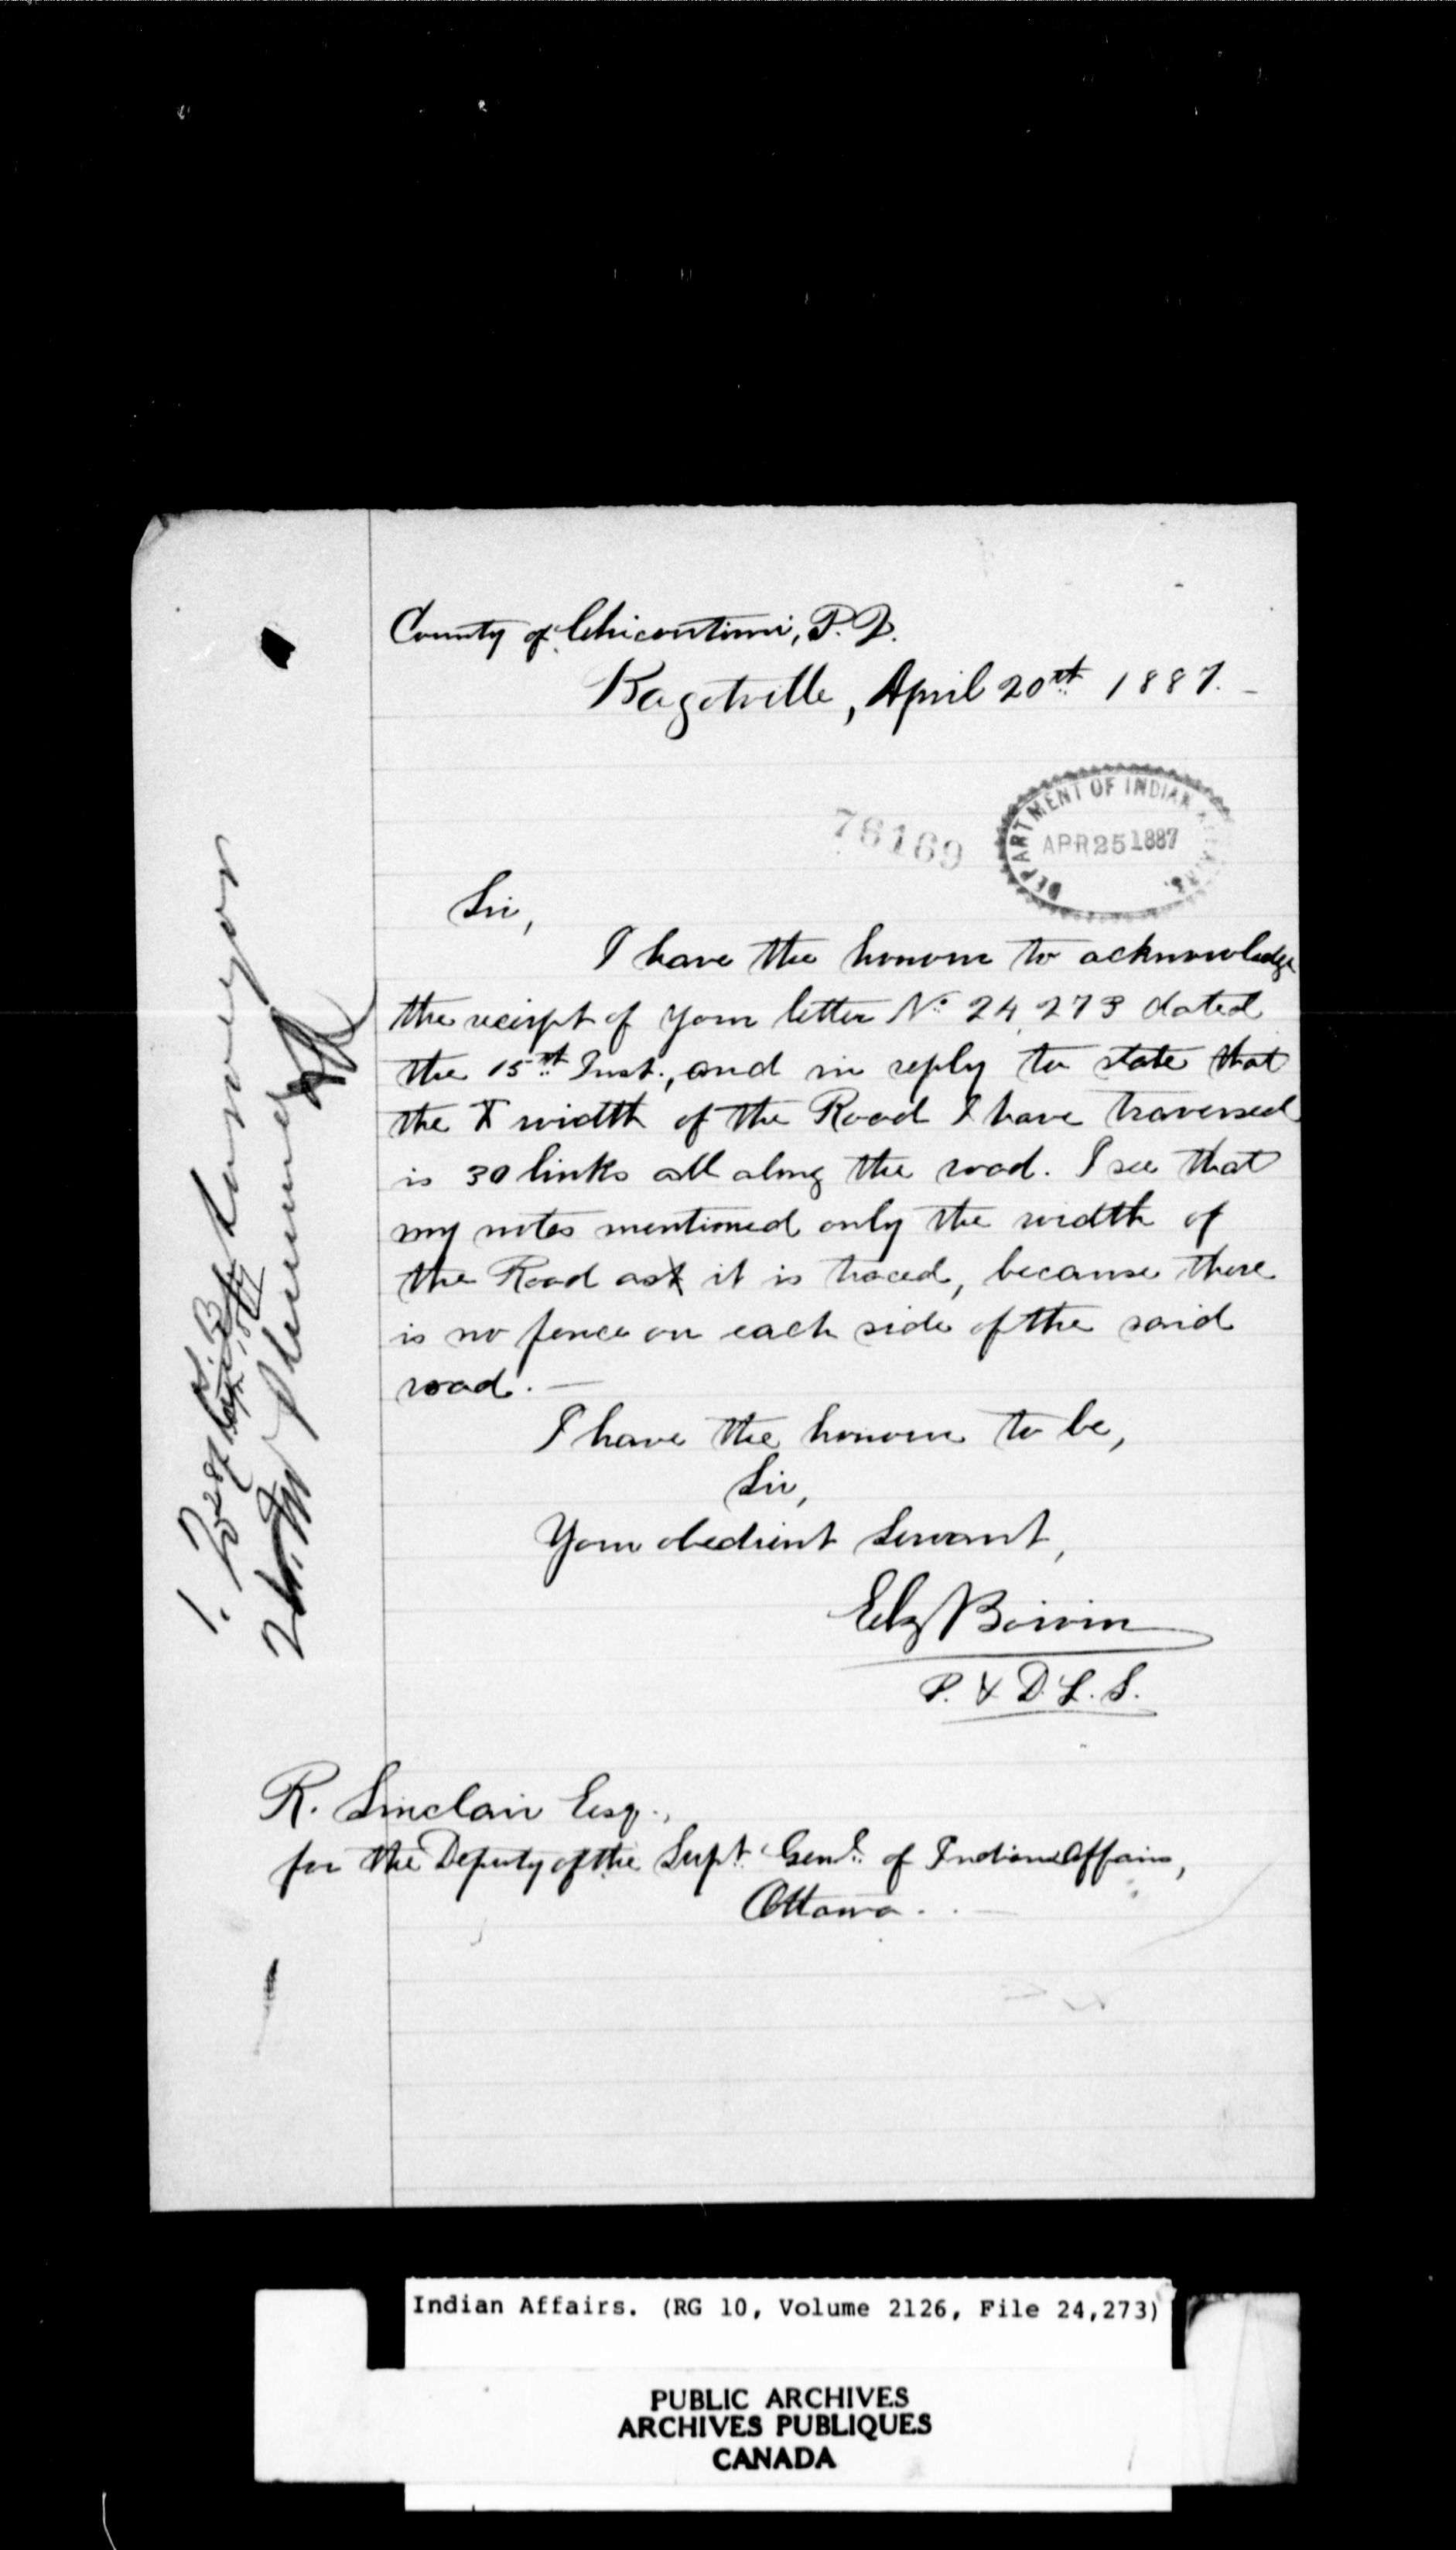 County of Chicoutimi, P. Q.
Bagotville, April 20st 1887. -
78169
DEPARTMENT OF INDIAN AFFAIRS.
APR 25 1887
Sir,
I have the honour to acknowledge
the receipt of your letter No 24,273 dated
the 15st Inst., and in reply to state that
the width of the Road I have traversed
is 30 links all along the road. I see that
my notes mentioned only the width of
the Road as it is traced, because there
is no fence on each side of the said
road. —
I have the honour to be,
Sir,
Your obedient Servant,
Elz Boivin
P. & D. L. S.
R. Sinclair Esq.,
for the Deputy of the Supt. Genl. of Indian Affairs,
Ottawa. . —
1. Surveyor
2 Mr Plummer
Indian Affairs. (RG 10, Volume 2126, File 24,273)
PUBLIC ARCHIVES
ARCHIVES PUBLIQUES
CANADA